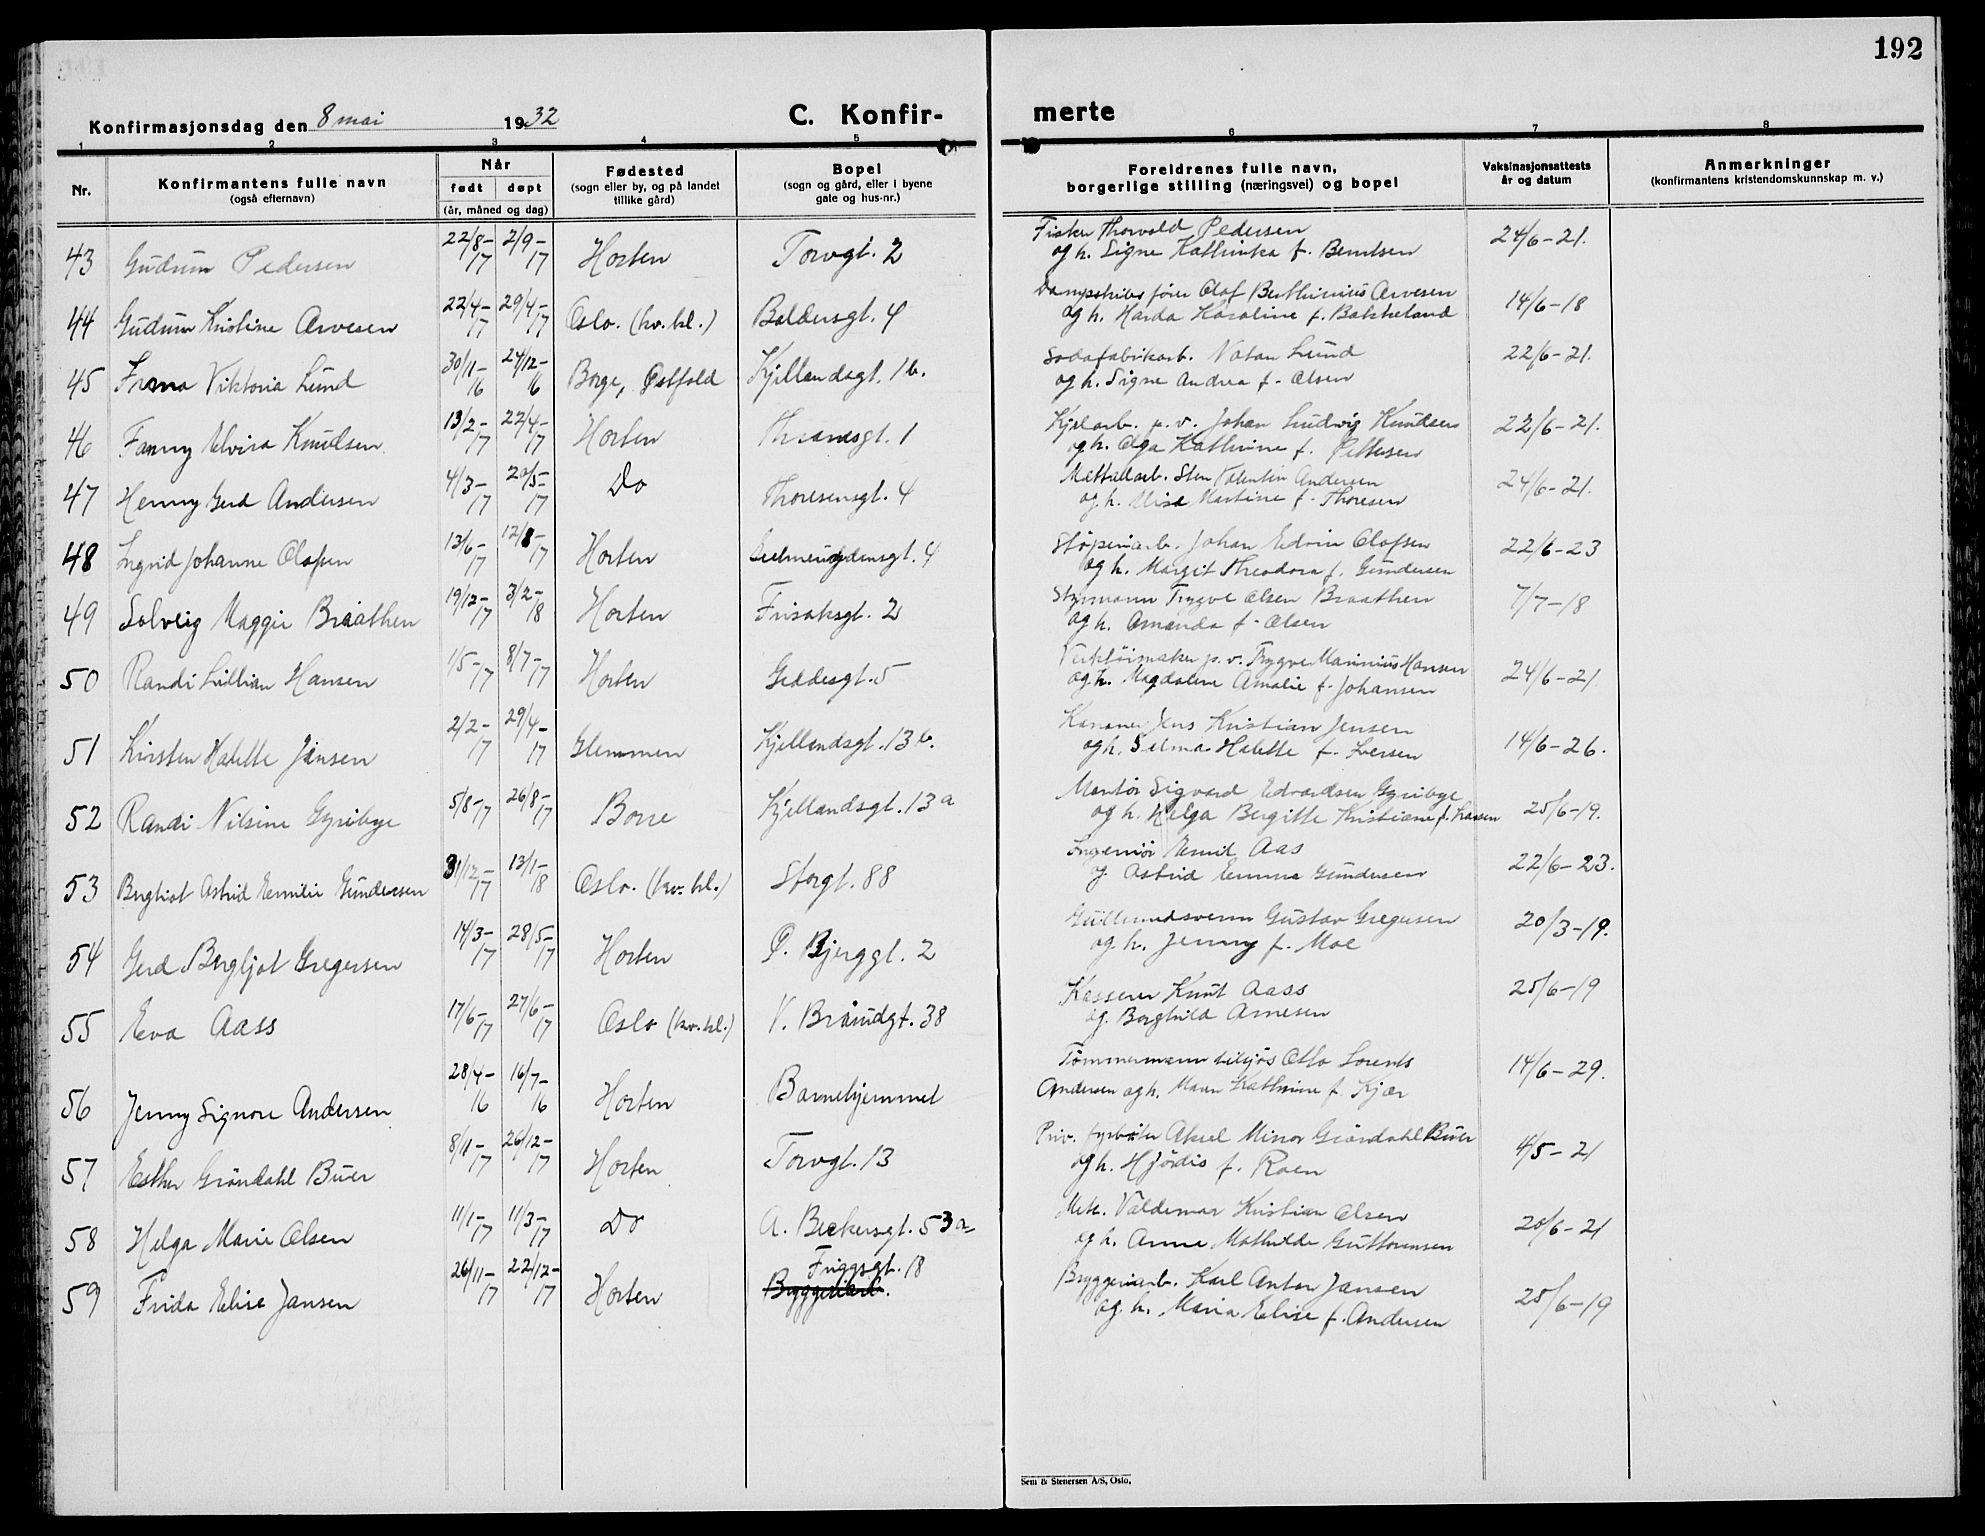 192
Konfirmasjonsdag den 8 mai 1932
C. Konfir-
merte
1 2 3 4 5 6 7 8
Nr.
Konfirmantens fulle navn
(også efternavn)
Når
født døpt
(år, måned og dag)
Fødested
(sogn eller by, og på landet
tillike gård)
Bopel
(sogn og gård, eller i byene
gate og hus-nr.)
Foreldrenes fulle navn,
borgerlige stilling (næringsvei) og bopel
Vaksinasjonsattests
år og datum
Anmerkninger
(konfirmantens kristendomskunnskap m. v.)
43 Gudrun Pedersen 22/8-17 2/9-17 Horten Torvgt. 2 Fisker Thorvald Pedersen 24/6-21.
og h. Signe Kathinka f. Berntsen
44 Gudrun Kristine Arvesen 22/4-17 29/4-17 Oslo. (kv.kl.) Baldersgt. 4 Dampskibsfører Olof Arvesen 14/6-18
og h. Harda Karoline f. Bakkeland
45 Irma Viktoria Lund 30/11-16 24/12-16 Borge, Østfold Kjellandsgt. 1 b. Sodafabrikarb. Natan Lund 22/6-21.
og h. Signe Andrea f. Olsen
46 Fanny Elvira Knudsen 13/2-17 22/4-17 Horten Thranesgt. 1 Kjelarb. p.v. Johan Ludvig Knudsen 22/6-21.
og h. Olga Kathrine f. Pettersen
47 Henny Gerd Andersen 4/3-17 20/5-17 Do Thoresensgt. 4 Metallarb. Sten Valentin Andersen 24/6-21.
og h. Elise Martine f. Thoresen
48 Ingrid Johanne Olafsen 13/6-17 12/8-17 Horten 4 Støperiarb. Johan Edvin Olofsen 22/6-23
og h. Margit Theodora f. Gundersen
49 Solveig Maggie Bråthen 19/12-17 3/2-18 Horten Frisaksgt. 2 Styrmann Trygve Olsen Braathen 7/7-18
og h. Amanda f. Olsen
50 Randi Lillian Hansen 1/5-17 8/7-17 Horten Geddesgt. 5 Verktøimaker p.v. Trygve Marinius Hansen 24/6-21.
og h. Magdalene Amalie f. Johansen
51 Kirsten Halette Jensen 2/2-17 29/4-17 Glemmen Kjellandsgt. 13 b. Kanoner Jens Kristian Jensen 14/6-26.
og h. Selma Halette f. Iversen
52 Randi Nilsine Gyribye 5/8-17 26/8-17 Borre Kjellandsgt. 13 a Montør Sigvard Edvardsen Gyribye 25/6-19.
og h. Helga Bergitte Kristiane f. Larsen
53 Bergliot Astrid Emilie Gundersen 31/12-17 13/1-18 Oslo. (kv.kl.) Storgt. 88 Ingeniør Emil Aas 22/6-23.
og Astrid Emma Gundersen
54 Gerd Bergljot Gregersen 14/3-17 28/5-17 Horten P. Bjerggt. 2 Gullsmedsvenn Gustav Gregersen 20/3-19.
og h. Jenny f. Moe
55 Eva Aass 17/6-17 27/6-17 Oslo (kv.kl.) V. Braudgt. 38 Kasserer Knut Aass 25/6-19
og Borghild Arnesen
56 Jenny Signore Andersen 28/4-16 16/7-16 Horten Barnehjemmet Tømmermann tilsjøs Otto Lorents 14/6-29.
Andersen og h. Maren Kathrine f. Kjær
57 Esther Grøndahl Buer 8/11-17 26/12-17 Horten Torvgt. 13 Priv. fyrbøter Aksel Minor Grøndahl Buer 4/5-21
og h. Hjørdis f. Roen
58 Helga Marie Olsen 11/1-17 11/3-17 Do A. Beckersgt. 53 a Mek. Valdemar Kristian Olsen 20/6-21
og h. Anna Mathilde Guttormsen
59 Frida Elise Jansen 26/11-17 22/12-17 Horten Friggsgt. 18 Bryggeriarb. Karl Anton Jansen 25/6-19
Bryggeriarb.
og h. Maria Elise f. Andersen
Sem & Stenersen A/S, Oslo.